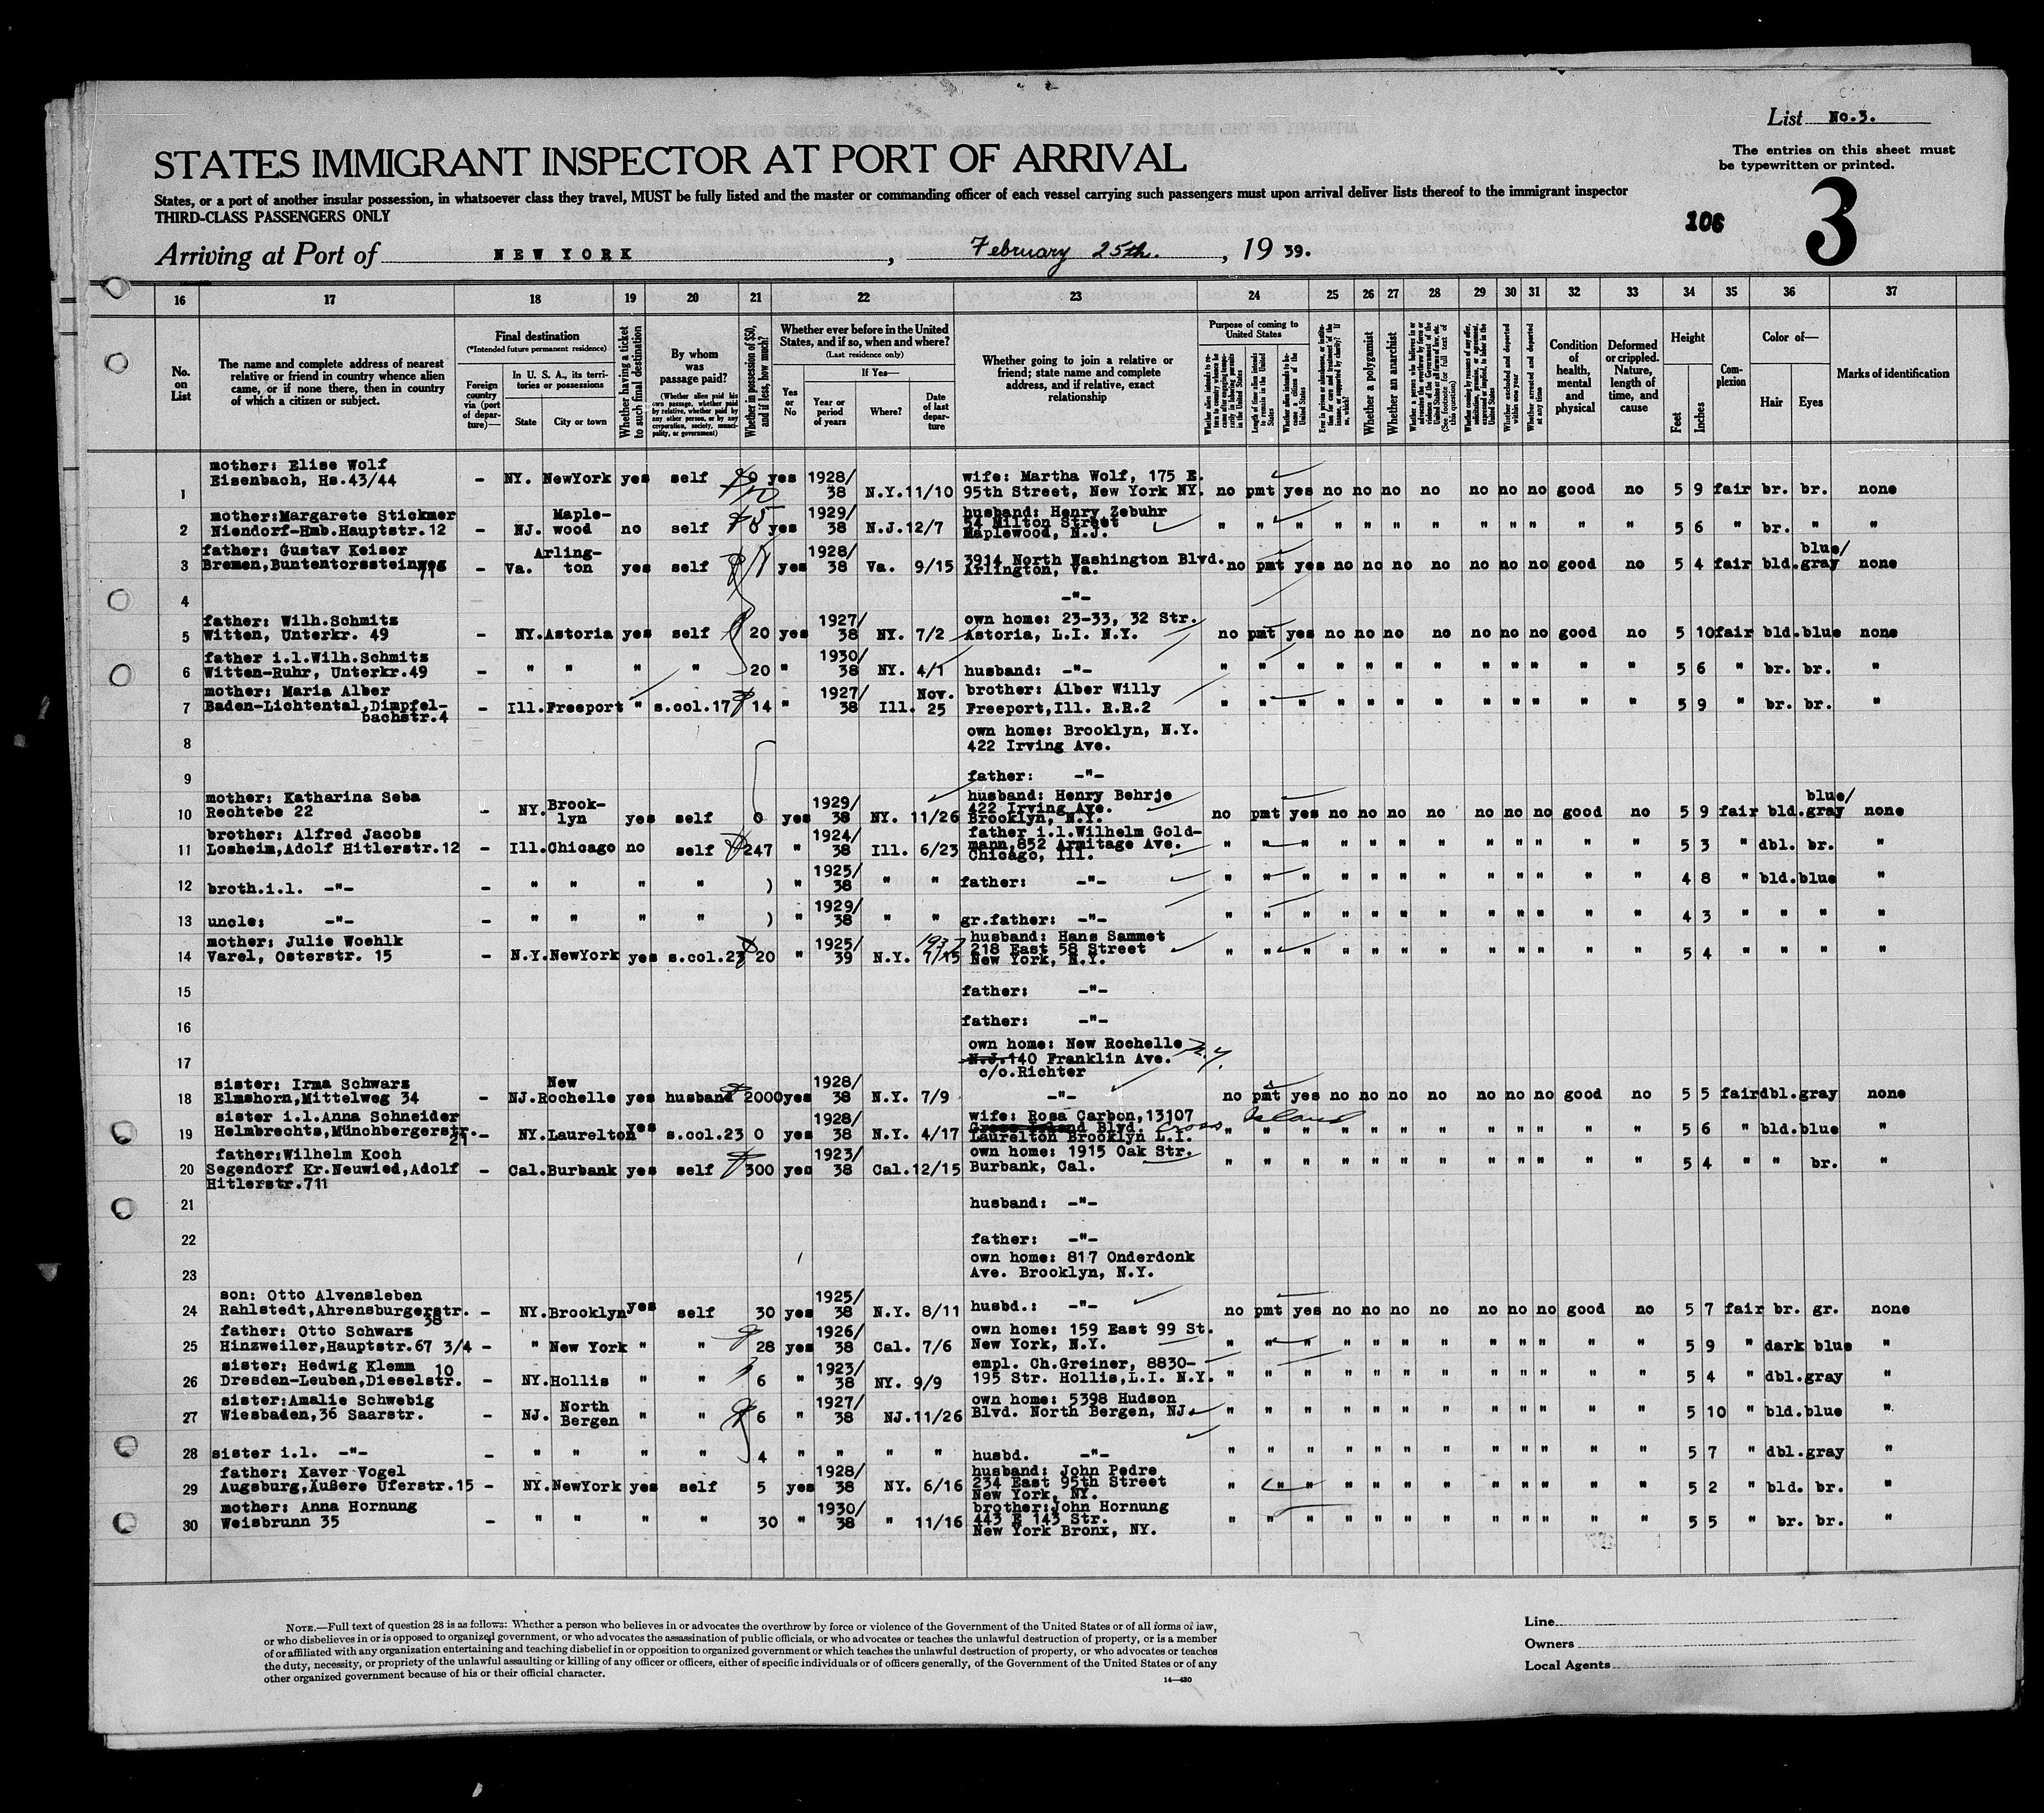 List No.3.
STATES IMMIGRANT INSPECTOR AT PORT OF ARRIVAL
The entries on this sheet must
be typewritten or printed.
States, or a port of another insular possession, in whatsoever class they travel, MUST be fully listed and the master or commanding officer of each vessel carrying such passengers must upon arrival deliver lists thereof to the immigrant inspector
THIRD-CLASS PASSENGERS ONLY
106 3
Arriving at Port of NEW YORK, February 25th., 19 39.
16 17 18 19 20 21 22 23 24 25 26 27 28 29 30 31 32 33 34 35 36 37
No. on List
The name and complete address of nearest relative or friend in country whence alien came, or if none there, then in country of which a citizen or subject.
Final destination
(*Intended future permanent residence)
Foreign country via (port of departure)—
In U. S. A., its territories or possessions
State City or town
Whether having a ticket to such final destination
By whom was passage paid?
(Whether alien paid his own passage, whether paid by relative, whether paid by any other person, or by any corporation, society, municipality, or government)
Whether in possession of $50, and if less, how much?
Whether ever before in the United States, and if so, when and where?
(Last residence only)
Yes or No
If Yes—
Year or period of years
Where?
Date of last departure
Whether going to join a relative or friend; state name and complete address, and if relative, exact relationship
Purpose of coming to United States
Length of time alien intends to remain in the United States
Whether alien intends to become a citizen of the United States
Whether a polygamist
Whether an anarchist
Whether excluded and deported within one year
Whether arrested and deported at any time
Condition of health, mental and physical
Deformed or crippled. Nature, length of time, and cause
Height
Feet Inches
Complexion
Color of—
Hair Eyes
Marks of identification
1 mother: Elise Wolf
Eisenbach, Hs.43/44 - NY. NewYork yes self yes 1928/38 N.Y. 11/10 wife: Martha Wolf, 175 E.
95th Street, New York NY. no pmt yes no no no no no no no good no 5 9 fair br. br. none
2 mother:Margarete Stickmer
Niendorf-Hmb.Hauptstr.12 - NJ. Maplewood no self 5 yes 1929/38 N.J. 12/7 husband: Henry Zebuhr
54 Milton Street
Maplewood, N.J. " " " " " " " " " " " " 5 6 " br. " "
3 father: Gustav Keiser
Bremen,Buntentorssteinweg - Va. Arlington yes self yes 1928/38 Va. 9/15 3914 North Washington Blvd.
Arlington, Va. no pmt yes no no no no no no no good no 5 4 fair bld. blue/gray none
4 -"-
5 father: Wilh.Schmitz
Witten, Unterkr. 49 - NY. Astoria yes self 20 yes 1927/38 NY. 7/2 own home: 23-33, 32 Str.
Astoria, L.I. N.Y. no pmt yes no no no no no no no good no 5 10 fair bld. blue none
6 father i.l.Wilh.Schmitz
Witten-Ruhr, Unterkr.49 - " " " " 20 " 1930/38 NY. 4/1 husband: -"- " " " " " " " " " " " " 5 6 " br. br. "
7 mother: Maria Alber
Baden-Lichtental,Dimpfel-
bachstr.4 - Ill. Freeport " s.col.17 14 " 1927/38 Ill. Nov. 25 brother: Alber Willy
Freeport,Ill. R.R.2 " " " " " " " " " " " " 5 9 " br. br. "
8 own home: Brooklyn, N.Y.
422 Irving Ave.
9 father: -"-
10 mother: Katharina Seba
Rechtebe 22 - NY. Brooklyn yes self 0 yes 1929/38 NY. 11/26 husband: Henry Behrje
422 Irving Ave.
Brooklyn, N.Y. no pmt yes no no no no no no no good no 5 9 fair bld. blue/gray none
11 brother: Alfred Jacobs
Losheim,Adolf Hitlerstr.12 - Ill. Chicago no self 247 " 1924/38 Ill. 6/23 father i.l.Wilhelm Gold-
mann,852 Armitage Ave.
Chicago, Ill. " " " " " " " " " " " " 5 3 " dbl. br. "
12 broth.i.l. -"- - " " " " ) " 1925/38 " " father: -"- " " " " " " " " " " " " 4 8 " bld. blue "
13 uncle: -"- - " " " " ) " 1929/38 " " gr.father: -"- " " " " " " " " " " " " 4 3 " " " "
14 mother: Julie Woehlk
Varel, Osterstr. 15 - N.Y. NewYork yes s.col.23 20 " 1925/39 N.Y. 1937 7/15 husband: Hans Sammet
218 East 58 Street
New York, N.Y. " " " " " " " " " " " " 5 4 " " " "
15 father: -"-
16 father: -"-
17 own home: New Rochelle
N.J. 140 Franklin Ave. N.Y.
c/o.Richter
18 sister: Irma Schwarz
Elmshorn,Mittelweg 34 - NJ. New Rochelle yes husband 2000 yes 1928/38 N.Y. 7/9 -"- no pmt yes no no no no no no no good no 5 5 fair dbl. gray none
19 sister i.l.Anna Schneider
Helmbrechts,Münchbergerstr. - NY. Laurelton yes s.col.23 0 yes 1928/38 N.Y. 4/17 wife: Rosa Carbon,13107
Cross Island Blvd. Cross Island
Laurelton Brooklyn L.I. " " " " " " " " " " " " 5 6 " bld. blue "
20 father:Wilhelm Koch
Segendorf Kr.Neuwied,Adolf
Hitlerstr.711 - Cal. Burbank yes self 300 yes 1923/38 Cal. 12/15 own home: 1915 Oak Str.
Burbank, Cal. " " " " " " " " " " " " 5 4 " " br. "
21 husband: -"-
22 father: -"-
23 own home: 817 Onderdonk
Ave. Brooklyn, N.Y.
24 son: Otto Alvensleben
Rahlstedt,Ahrensburgerstr. 38 - NY. Brooklyn yes self 30 yes 1925/38 N.Y. 8/11 husbd.: -"- no pmt yes no no no no no no no good no 5 7 fair br. gr. none
25 father: Otto Schwarz
Hinzweiler,Hauptstr.67 3/4 - " New York " " 28 yes 1926/38 Cal. 7/6 own home: 159 East 99 St.
New York, N.Y. " " " " " " " " " " " " 5 9 " dark blue "
26 sister: Hedwig Klemm 10
Dresden-Leuben,Dieselstr. - NY. Hollis " " 6 " 1923/38 NY. 9/9 empl. Ch.Greiner, 8830-
195 Str. Hollis,L.I. N.Y. " " " " " " " " " " " " 5 4 " dbl. gray "
27 sister:Amalie Schwebig
Wiesbaden,36 Saarstr. - NJ. North Bergen " " 6 " 1927/38 NJ. 11/26 own home: 5398 Hudson
Blvd. North Bergen, NJ. " " " " " " " " " " " " 5 10 " bld. blue "
28 sister i.l. -"- - " " " " 4 " " " " husbd. -"- " " " " " " " " " " " " 5 7 " dbl. gray "
29 father: Xaver Vogel
Augsburg,Äußere Uferstr.15 - NY. NewYork yes self 5 yes 1928/38 NY. 6/16 husband: John Pedre
234 East 95th Street
New York, NY. " " " " " " " " " " " " 5 2 " bld. br. "
30 mother: Anna Hornung
Weisbrunn 35 - " " " " 30 " 1930/38 " 11/16 brother:John Hornung
443 E 143 Str.
New York Bronx, NY. " " " " " " " " " " " " 5 5 " br. br. "
NOTE.—Full text of question 28 is as follows: Whether a person who believes in or advocates the overthrow by force or violence of the Government of the United States or of all forms of law,
or who disbelieves in or is opposed to organized government, or who advocates the assassination of public officials, or who advocates or teaches the unlawful destruction of property, or is a member
of or affiliated with any organization entertaining and teaching disbelief in or opposition to organized government or which teaches the unlawful destruction of property, or who advocates or teaches
the duty, necessity, or propriety of the unlawful assaulting or killing of any officer or officers, either of specific individuals or of officers generally, of the Government of the United States or of any
other organized government because of his or their official character.
14—430
Line
Owners
Local Agents